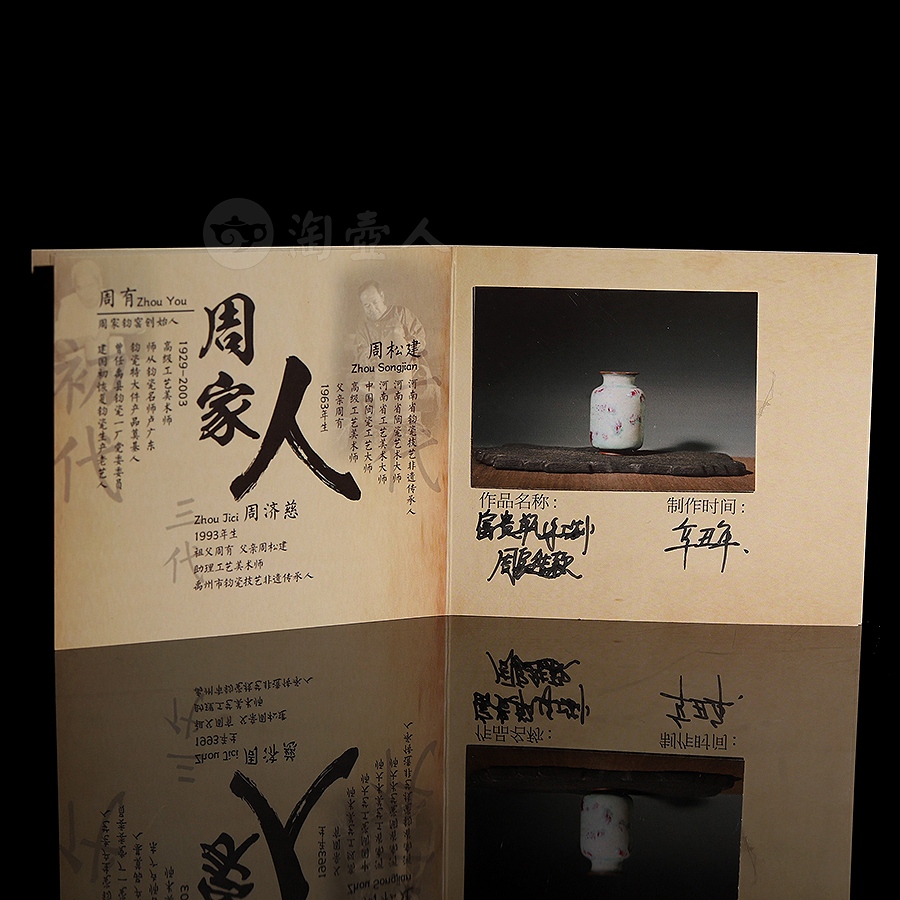 淘壶人
周有 Zhou You
周家钧窑创始人
1929-2003
高级工艺美术师
师从钧瓷名师卢广东
钧瓷特大件产品奠基人
曾任禹县钧瓷一厂党委委员
建国初恢复钧瓷生产老艺人
初代
周家人
周松建
Zhou Songjian
河南省钧瓷技艺非遗传承人
河南省陶瓷艺术大师
河南省工艺美术大师
中国陶瓷工艺大师
高级工艺美术师
父亲周有
1963年生
三代
Zhou Jici 周济慈
1993年生
祖父周有 父亲周松建
助理工艺美术师
禹州市钧瓷技艺非遗传承人
作品名称：
富贵
周家钧窑
制作时间：
辛丑年、